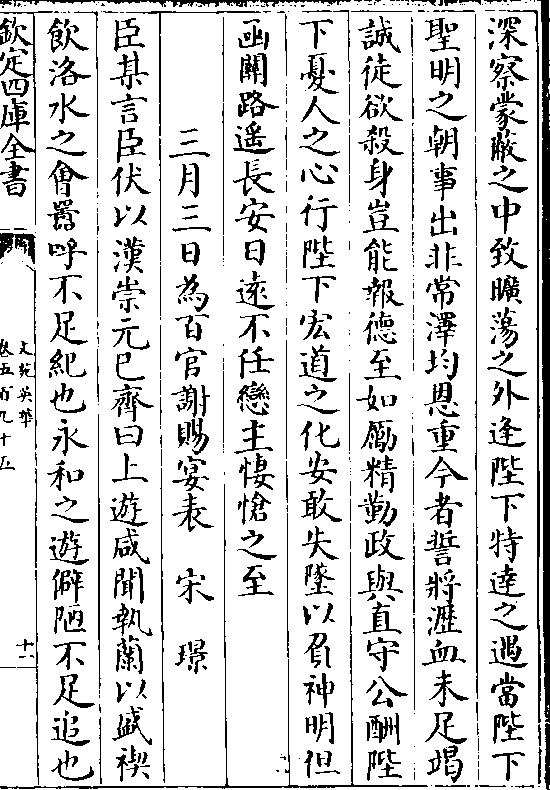 深察蒙蔽之中致曠蕩之外逢陛下特達之遇當陛下
聖明之朝事出非常澤均恩重今者誓將瀝血未足竭
誠徒欲殺身豈能報德至如勵精勤政與直守公酬陛
下憂人之心行陛下宏道之化安敢失墜以負神明但
函關路遥長安日遠不任戀主悽愴之至
三月三日為百官謝賜宴表　宋璟
臣某言臣伏以漢崇元巳齊曰上遊咸聞執蘭以盛禊
飲洛水之會嚚呼不足紀也永和之遊僻陋不足追也
欽定四庫全書
文苑英華
卷五百九十五
十一